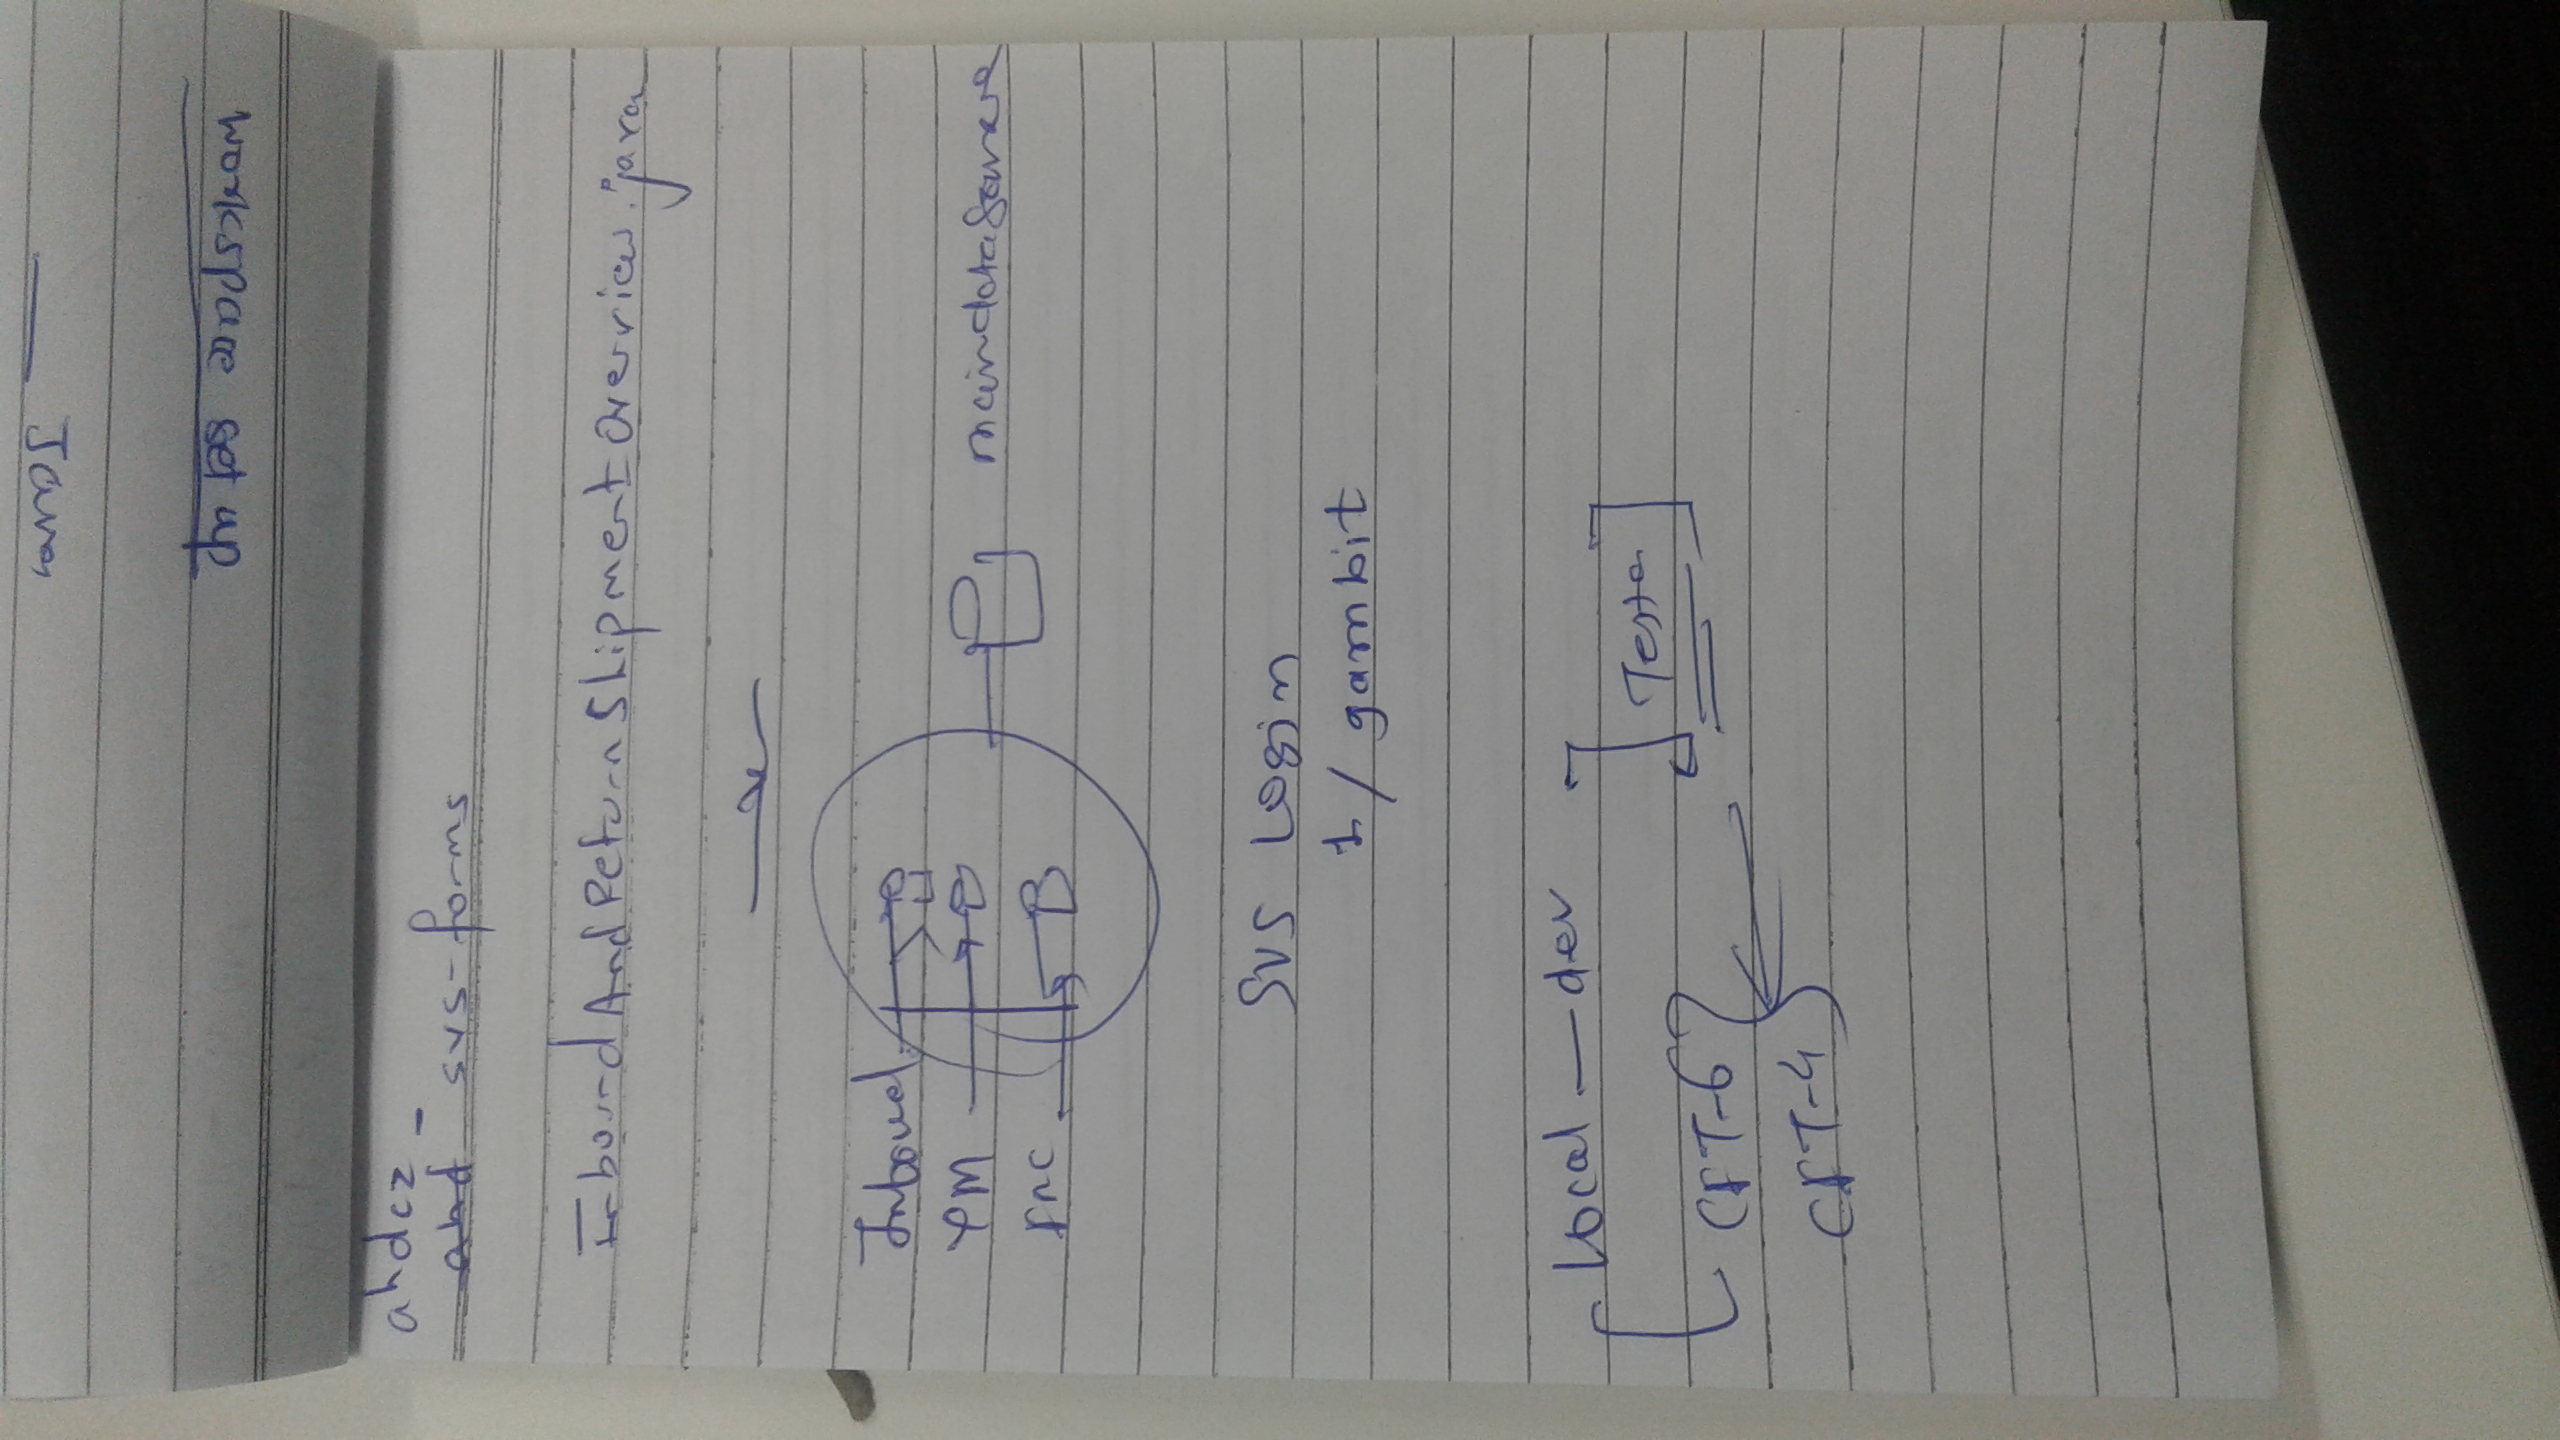 workspace set up
ahdcz -
ahd svs-forms
InboundAndReturnShipmentOverview.java
Inbound
YM
maindataSource
SVS Login
1 / gambit
Local — dev
Tester
CFT-6
CFT-4